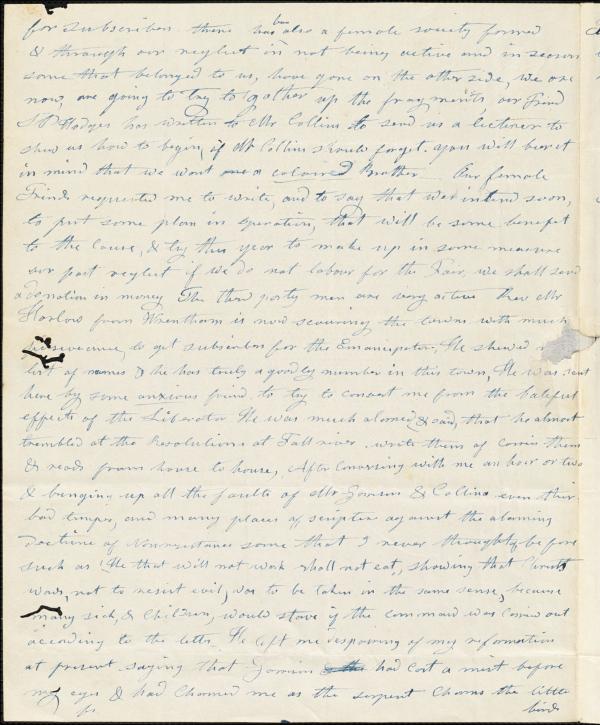 for subscriber. there has been also a female society formed
& through our neglect in not being active and in season
some that belonged to us, have gone on the other side, we are
now, are going to try to gather up the fragments, our Friend
Hodges has written to Mr Collins to send us a lecturer to
show us how to begin, if Mr Collins should forget. you will bear it
in mind that we want a coloured Brother Our female
Friends requested me to write, and to say that we intend soon,
to put some plan in operation, that will be some benefit
to the Cause, & try this year to make up in some measure
our past neglect if we do not labour for the Fair, we shall send
a donation in money The third party men are very active Rev Mr
Harlow from Wrentham is now scouring the towns with much
to get subscribers for the Emancipator, He showed
list of names & he has truly a goodly number in this town, He was sent
here by some anxious friend to try to convert me from the baleful
effects of the Liberator He was much alarmed & said, that he almost
trembled at the Resolutions at Fall river
& reads from house to house, After Conversing with me an hour or two
& bringing up all the faults of Mr Garrison & Collins even their
bad temper, and many places of scripture against the alarming
Doctrine of Nonresistance some that I never thought of before
such as "He that will not work shall not eat," showing that Christ's
words, not to resist evil, was to be taken in the same sense, because
many sick, & Children, would starve if the command was Carried out
according to the letter. He left me despairing of my reformation
at present saying that Garrison had Cast a mist before
my eyes & had Charmed me as the serpent Charms the little
birds